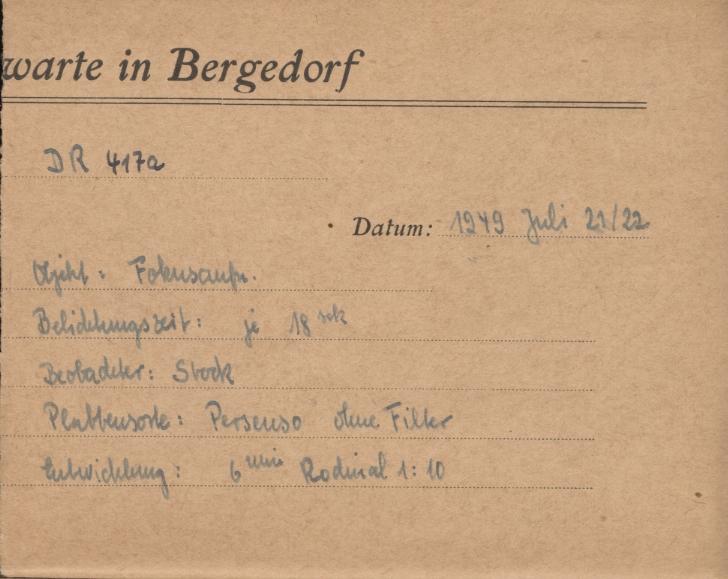 warte in Bergedorf
DR 417a
Datum: 1949 Juli 21/22
Objekt: Fokusaufn.
Belichtungszeit: je 18 sek
Beobachter: Stock
Plattensorte: Persenso ohne Filter
Entwicklung: 6 min Rodinal 1:10